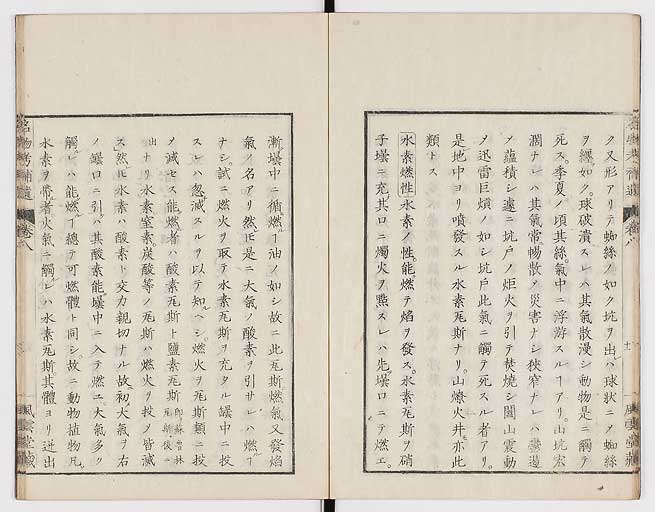 ク又形アリテ蜘絲ノ如ク坑ヲ出ハ球狀ニノ蜘絲
ヲ纒如ク球破潰スレハ其氣散漫シ動物是ニ觸テ
死ス季夏ノ頃其絲氣中ニ浮游スルアリ山坑宏
濶ナレハ其氣常暢散ノ災害ナシ狹窄ナレハ
ノ蘊積シ遽ニ坑戸ノ炬火ヲ引テ焚燒シ闔山震動
ノ迅雷巨煩ノ如シ坑戸此氣ニ觸テ死スル者アリ
是地中ヨリ噴發スル水素瓦斯ナリ山燎火井亦此
類トス
水素燃性 水素ノ性能燃テ焰ヲ發ス水素瓦斯ヲ硝
子壜ニ充其口ニ燭火ヲ點スレハ先壜口ニテ燃エ
漸壜中ニ循燃ー油ノ如シ故ニ此瓦斯燃氣又發焰
氣ノ名アリ然モ是ニ大氣ノ酸素ヲ引サレハ燃ー
ナシ試ニ燃火ヲ取テ水素瓦斯ヲ充タル罎中ニ投
スレハ忽滅スルヲ以テ知ヘシ燃火ヲ瓦斯類ニ投
ノ滅セス能燃者ハ酸素瓦斯ト鹽素瓦斯
出ナリ水素窒素炭酸等ノ瓦斯ハ燃火ヲ投ノ皆滅
ス然モ水素ハ酸素ト交力親切ナル故初大氣ヲ右
ノ罎口ニ引其酸素能壜中ニ入テ燃エ大氣多ク
觸レハ能燃ー總テ可燃體ト同シ故ニ動物植物凡
水素ヲ帶者火氣ニ觸レハ水素瓦斯其體ヨリ迸出
名物考補遺
卷八
風雲堂藏